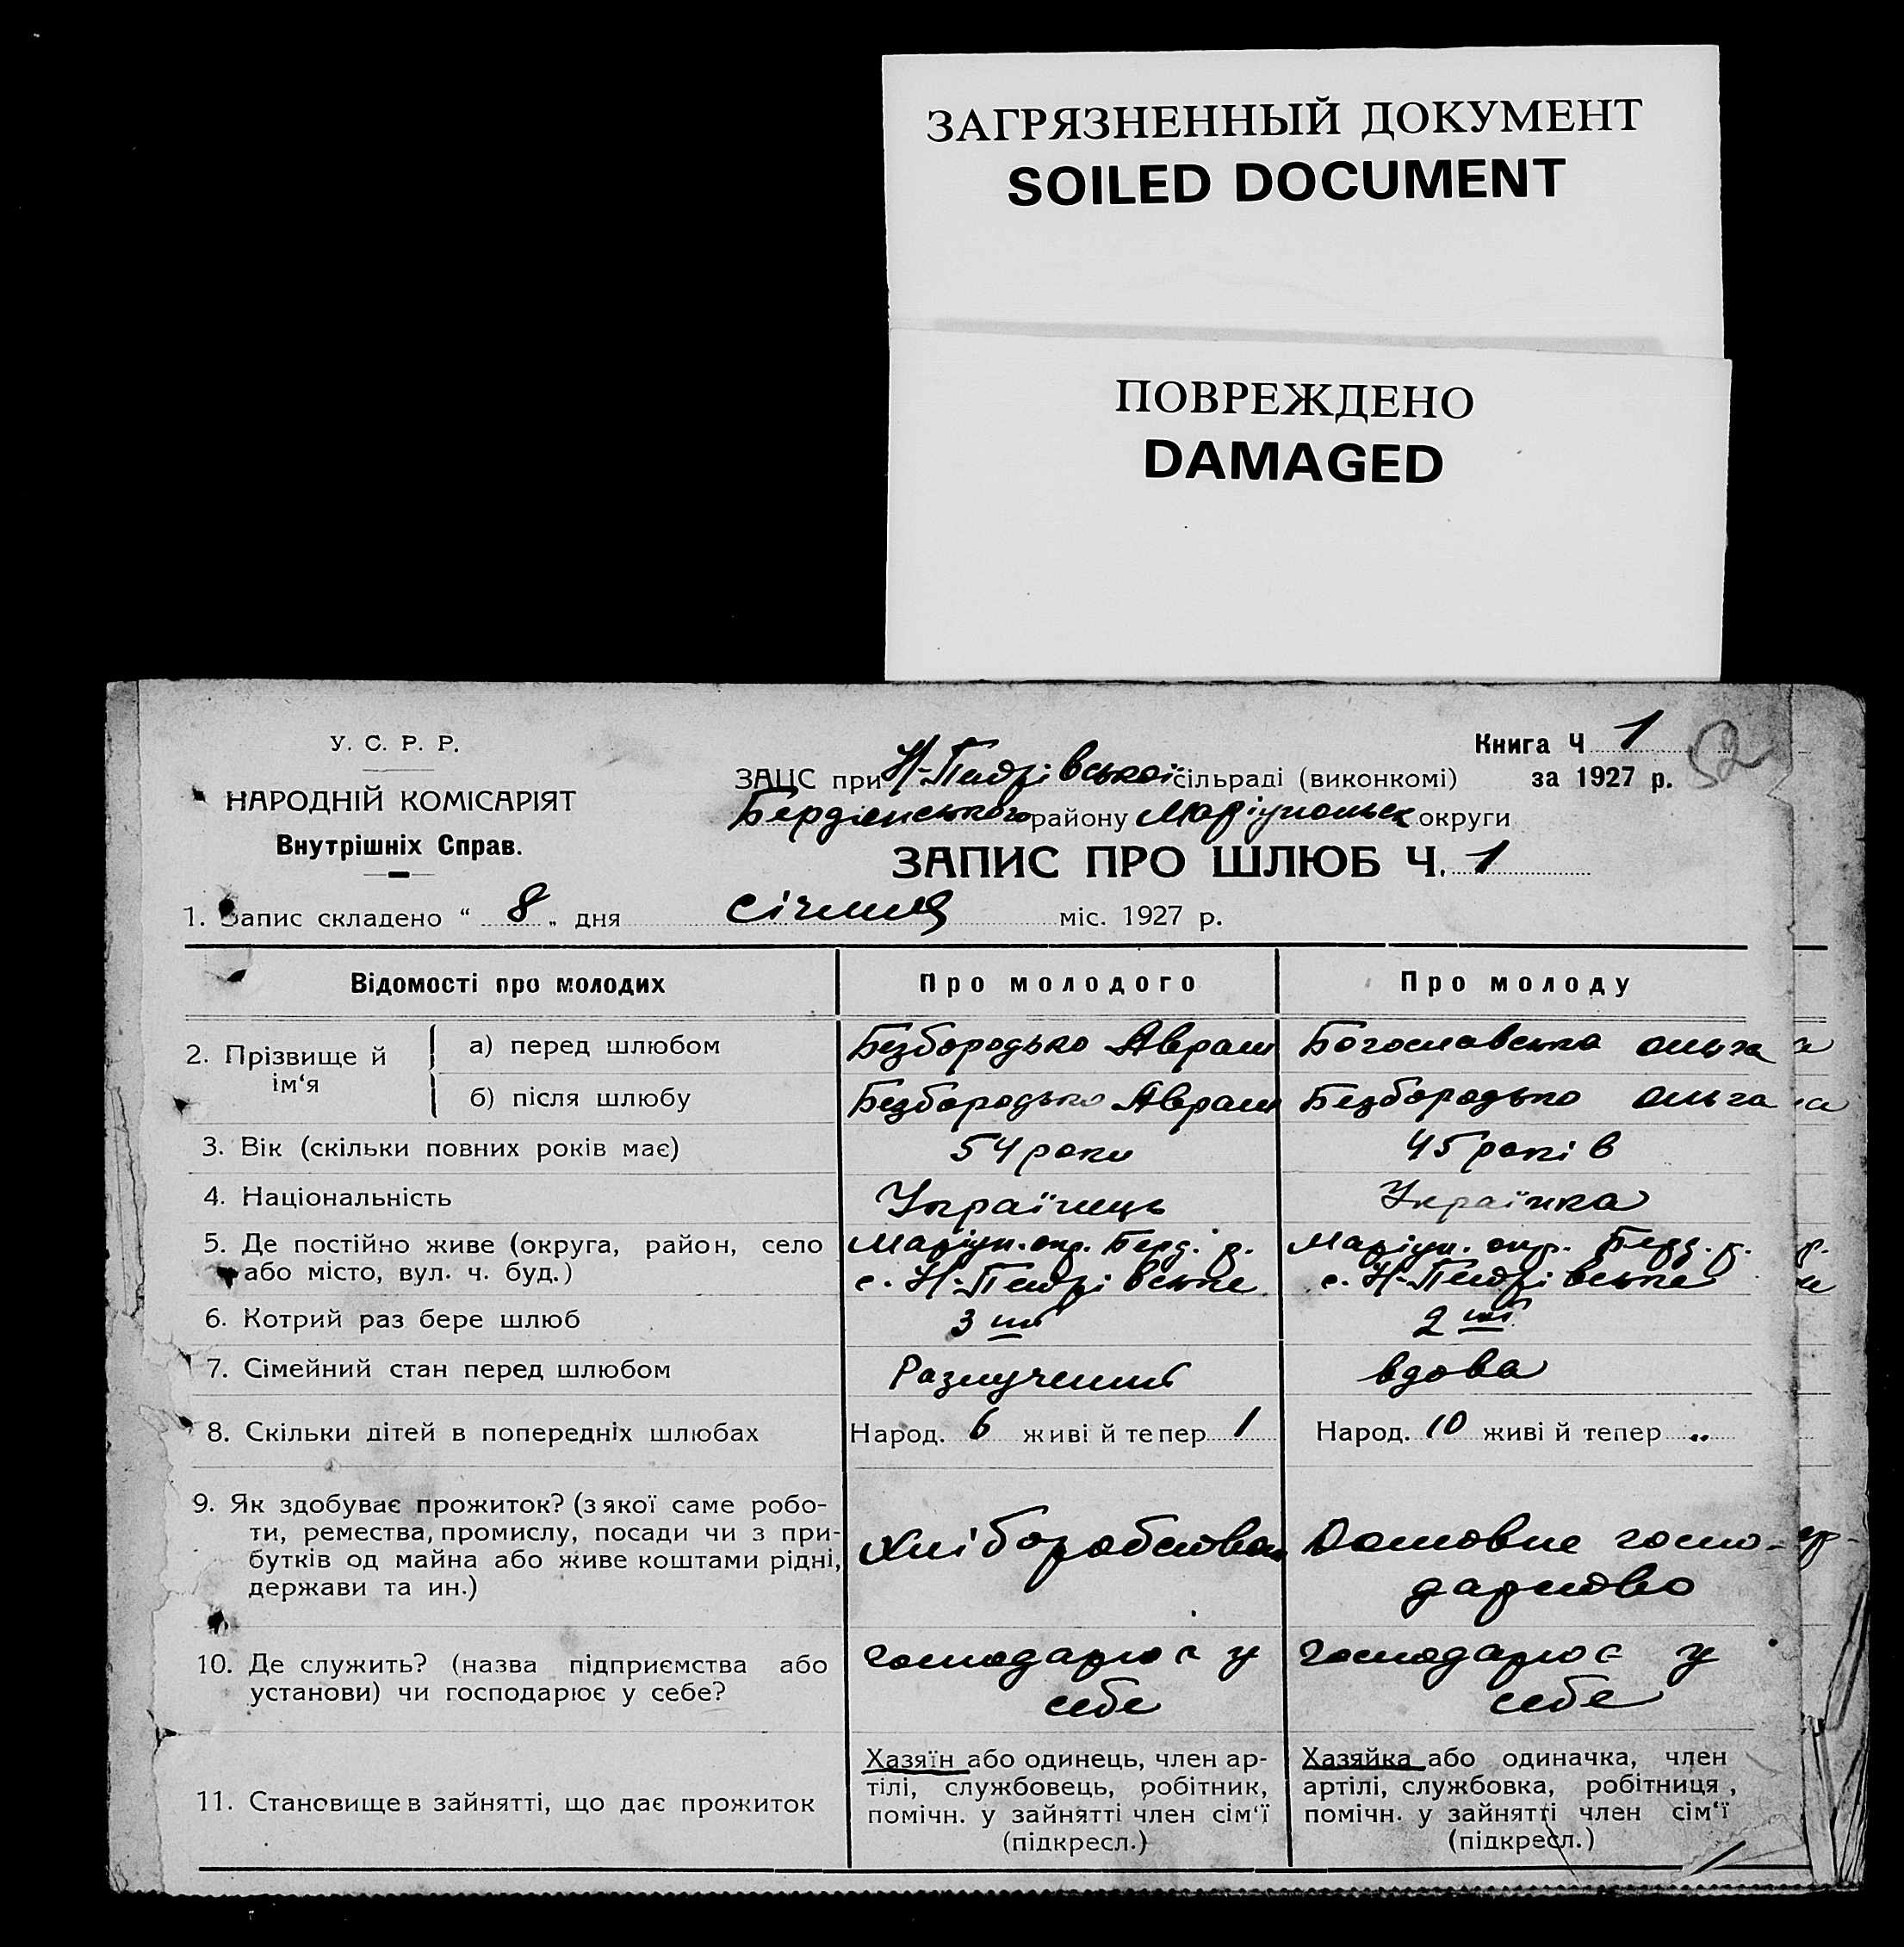 ЗАГРЯЗНЕННЫЙ ДОКУМЕНТ
SOILED DOCUMENT
ПОВРЕЖДЕНО
DAMAGED
У. С. Р. Р.
НАРОДНІЙ КОМІСАРІЯТ
Внутрішніх Справ.
Книга Ч 1
52
за 1927 р.
ЗАЦС при Н-Петрівської сільраді (виконкомі)
Бердянського району Маріупольськ округи
ЗАПИС ПРО ШЛЮБ Ч. 1
1. Запис складено “ 8 „ дня січния міс. 1927 р.
Відомості про молодих Про молодого Про молоду
2. Прізвище й ім‘я
а) перед шлюбом Безбородько Аврам Богославська Ольга
б) після шлюбу Безбородько Аврам Безбородько Ольга
3. Вік (скільки повних років має) 54 роки 45 років
4. Національність Українець Українка
5. Де постійно живе (округа, район, село або місто, вул. ч. буд.)
Маріуп. окр. Берд. р. Маріуп. окр. Берд. р.
с. Н-Петрівське с. Н-Петрівське
6. Котрий раз бере шлюб 3 ий 2 ий
7. Сімейний стан перед шлюбом Разлучений вдова
8. Скільки дітей в попередніх шлюбах Народ. 6 живі й тепер 1 Народ. 10 живі й тепер „
9. Як здобуває прожиток? (з якої саме робо-
ти, ремества, промислу, посади чи з при-
бутків од майна або живе коштами рідні,
держави та ин.)
Хліборобство
Домовне госпо-
дарство
10. Де служить? (назва підприємства або
установи) чи господарює у себе?
господарює у
себе
господарює у
себе
11. Становище в зайнятті, що дає прожиток
Хазяїн або одинець, член ар-
тілі, службовець, робітник,
помічн. у зайнятті член сім‘ї
(підкресл.)
Хазяйка або одиначка, член
артілі, службовка, робітниця,
помічн. у зайнятті член сім‘ї
(підкресл.)